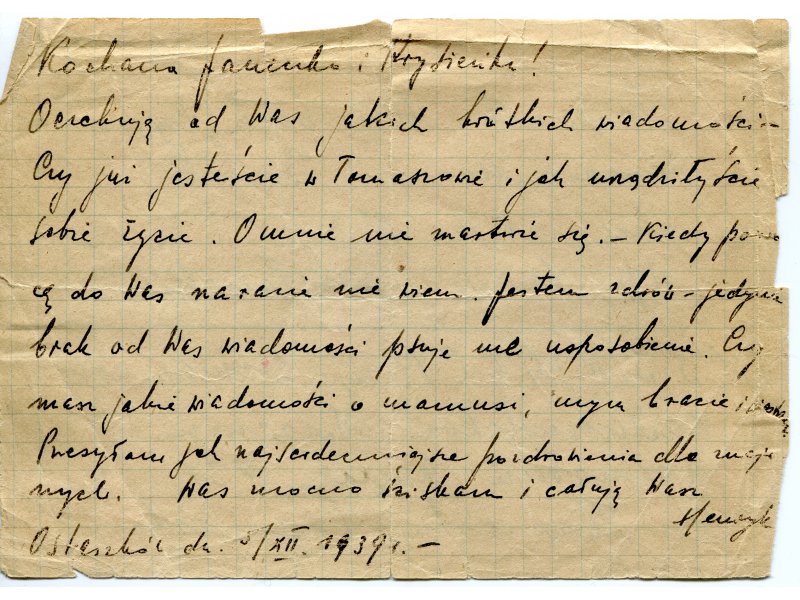 Kochana Janeczko i Krysieńko!
Oczekuję od Was jakich krótkich wiadomości –
Czy już jesteście w Tomaszowie i jak urządziłyście
sobie życie. O mnie nie martwcie się. – Kiedy
cę do Was narazie nie wiem. Jestem zdrów – jedynie
brak od Was wiadomości psuje me usposobienie. Czy
masz jakie wiadomości o mamusi, mym bracie i
Przesyłam jak najserdeczniejsze pozdrowienia dla znajo
mych. Was mocno ściskam i całuję Wasz
Henryk
Ostaszków dn. 5/XII. 1939 r. –